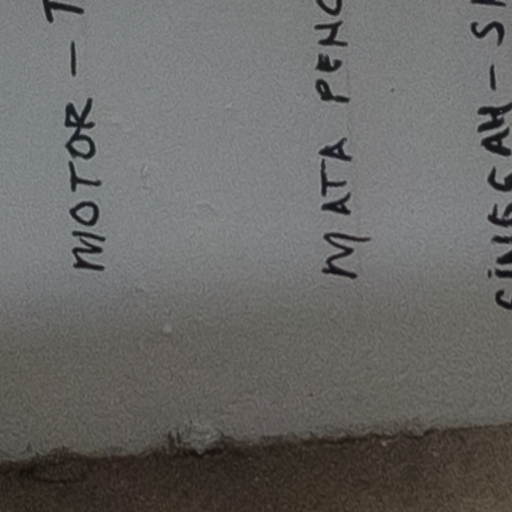 MOTOR - T
MATA PENC
SINGGAH - SI